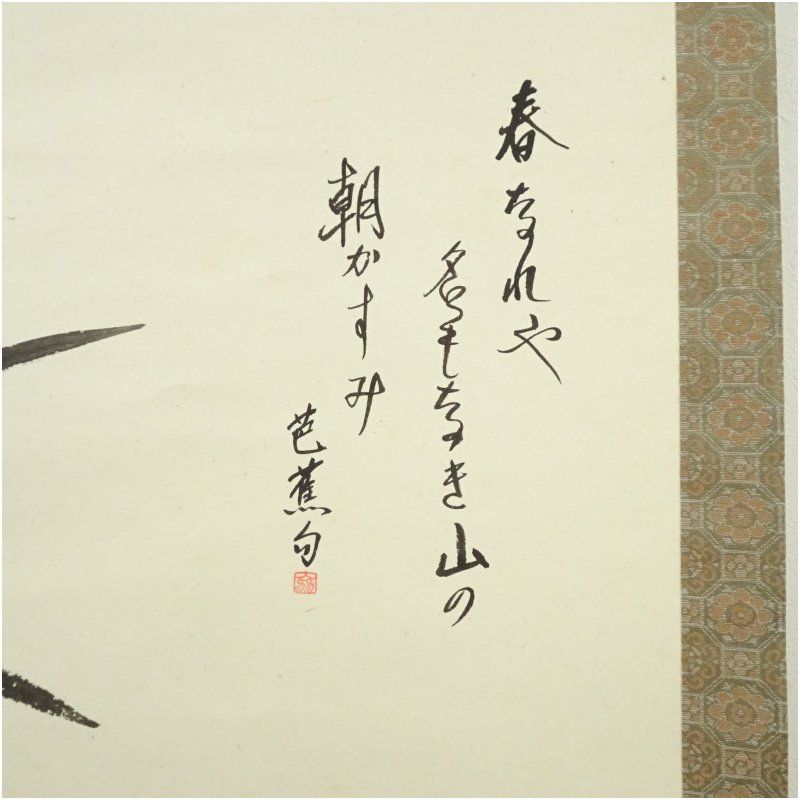 春なれや
名もなき山の
朝かすみ
芭蕉句